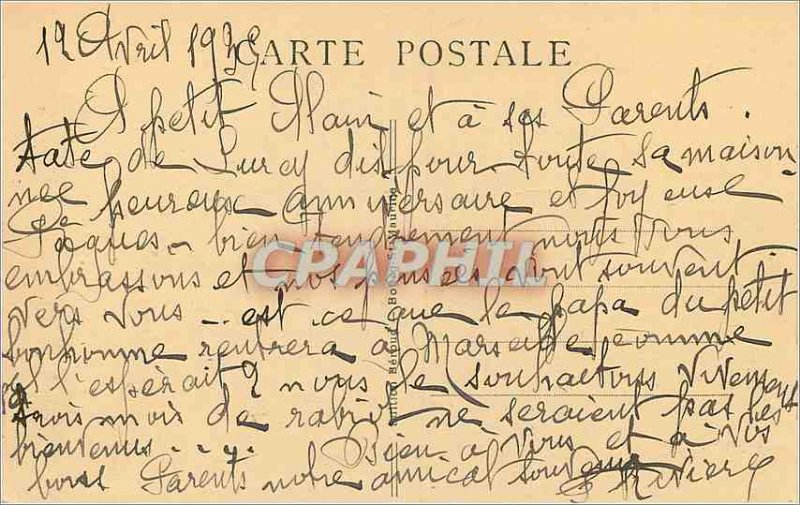 12 Avril 1939
CARTE POSTALE
A petit Alain et à ses Parents.
tate de Lurcy dis pour toute sa maison
née heureux anniversaire et joyeuse
Pâques - bien tendrement nous vous
embrassons et nos pensées vont souvent
vers vous - est ce que le papa du petit
bonhomme rentrera à Marseille comme
il l'espérait ? nous le souhaitons vivement
trois mois de rabiot ne seraient pas les
bienvenus ....
Bien à vous et à vos
bons Parents notre amical souvenir
CPAPHIL